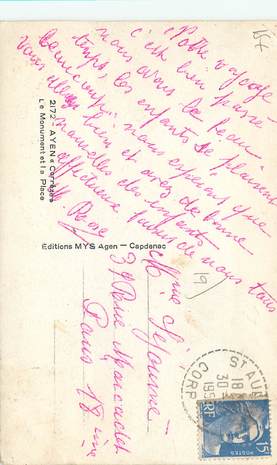 Votre voyage
c'est bien passé
nous avons le beau
temps, les enfants se plaisent
beaucoup. nous espérons que
vous allez bien et avez de bonne
nouvelles des enfants
affectueux de nous tous
Rose
2172 - AYEN (Corrèze)
Le Monument et la Place
Éditions MYS Agen — Capdenac
Mme Lejeune
39 Rue Marcadet
Paris 18 ème
19)
18
30
CORR
15F
POSTES
RF